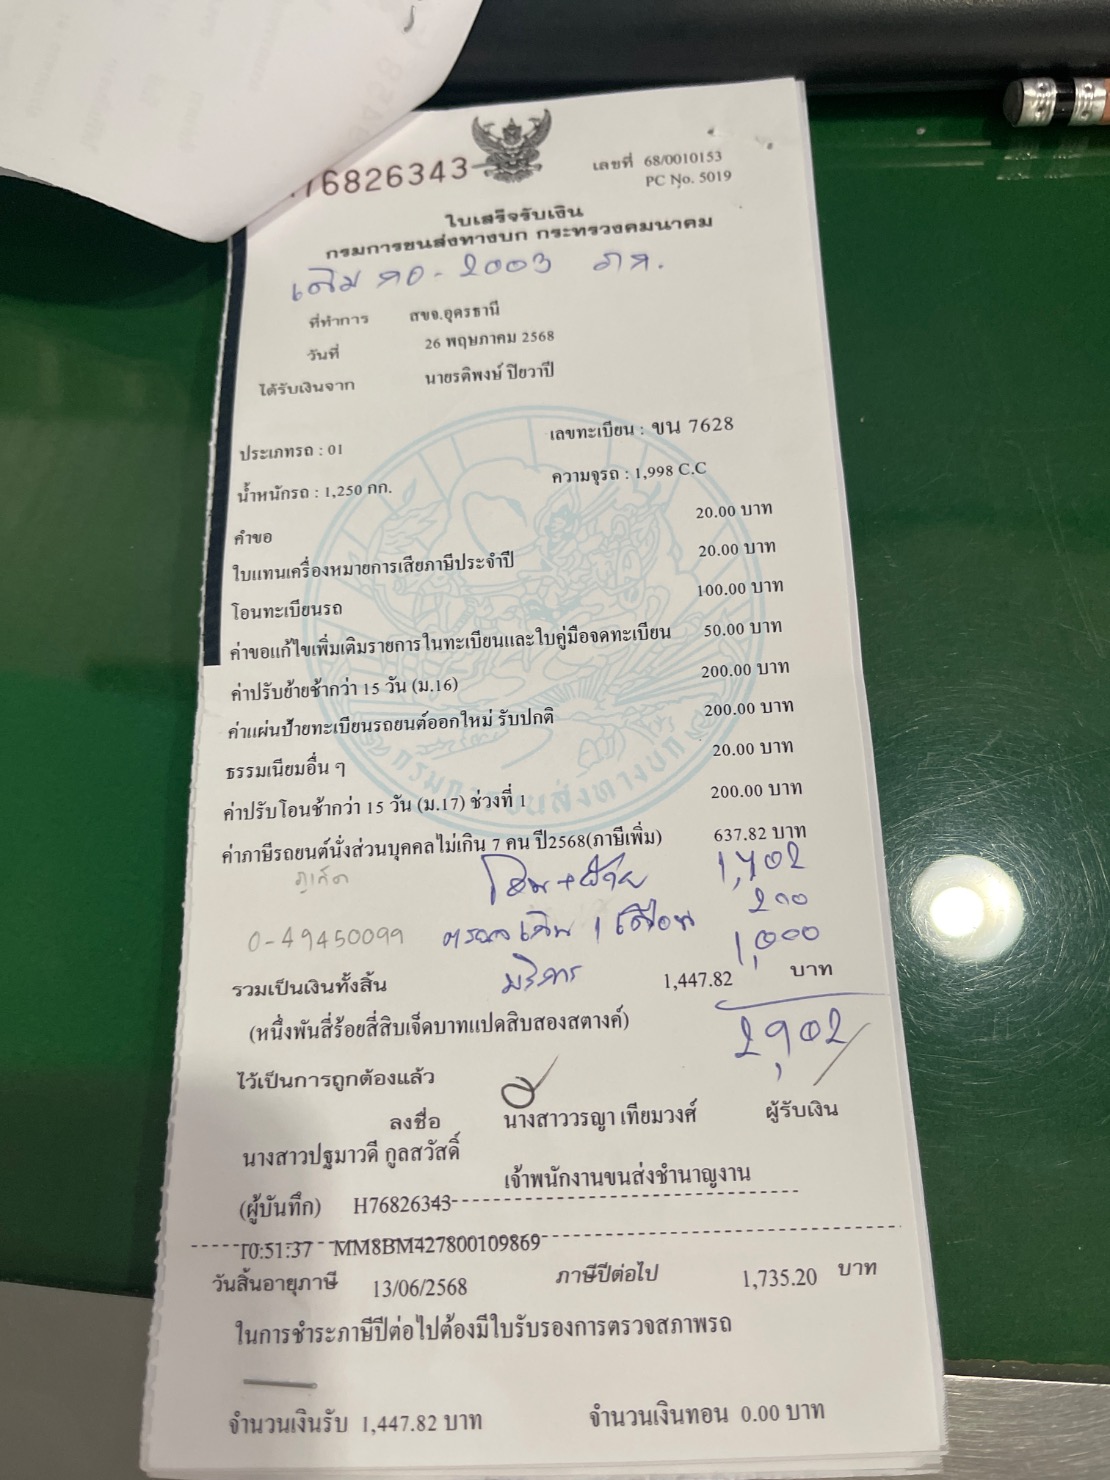 76826343
เลขที่ 68/0010153
PC No. 5019
ใบเสร็จรับเงิน
กรมการขนส่งทางบก กระทรวงคมนาคม
เดิม - 2003 ภก.
ที่ทำการ สขจ.อุดรธานี
วันที่ 26 พฤษภาคม 2568
ได้รับเงินจาก นายรติพงษ์ ปิยวาปี
ประเภทรถ : 01 เลขทะเบียน : ขน 7628
น้ำหนักรถ : 1,250 กก. ความจุรถ : 1,998 C.C
คำขอ 20.00 บาท
ใบแทนเครื่องหมายการเสียภาษีประจำปี 20.00 บาท
โอนทะเบียนรถ 100.00 บาท
ค่าขอแก้ไขเพิ่มเติมรายการในทะเบียนและใบคู่มือจดทะเบียน 50.00 บาท
ค่าปรับย้ายช้ากว่า 15 วัน (ม.16) 200.00 บาท
ค่าแผ่นป้ายทะเบียนรถยนต์ออกใหม่ รับปกติ 200.00 บาท
ธรรมเนียมอื่น ๆ 20.00 บาท
ค่าปรับโอนช้ากว่า 15 วัน (ม.17) ช่วงที่ 1 200.00 บาท
ค่าภาษีรถยนต์นั่งส่วนบุคคลไม่เกิน 7 คน ปี2568(ภาษีเพิ่ม) 637.82 บาท
กรมการขนส่งทางบก
ภูเก็ต โอน+ย้าย 1,702
0-49450099 1 เดือน 200
บริการ 1,000
รวมเป็นเงินทั้งสิ้น 1,447.82 บาท
(หนึ่งพันสี่ร้อยสี่สิบเจ็ดบาทแปดสิบสองสตางค์) 2,902
ไว้เป็นการถูกต้องแล้ว
ลงชื่อ นางสาววรญา เทียมวงศ์ ผู้รับเงิน
นางสาวปฐมาวดี กูลสวัสดิ์
เจ้าพนักงานขนส่งชำนาญงาน
(ผู้บันทึก) H76826343
10:51:37 MM8BM427800109869
วันสิ้นอายุภาษี 13/06/2568 ภาษีปีต่อไป 1,735.20 บาท
ในการชำระภาษีปีต่อไปต้องมีใบรับรองการตรวจสภาพรถ
จำนวนเงินรับ 1,447.82 บาท จำนวนเงินทอน 0.00 บาท